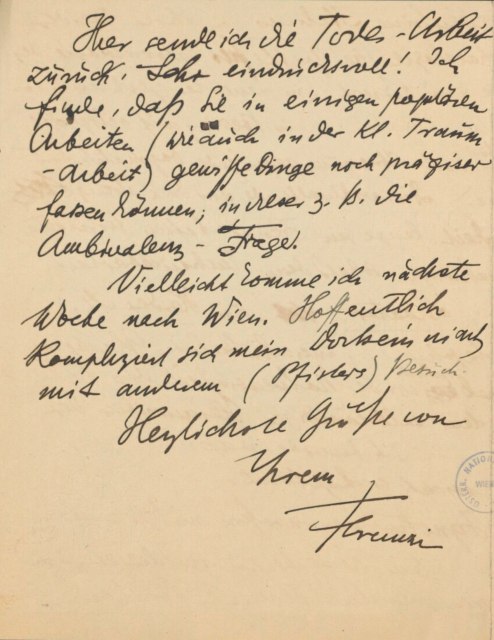 Hier sende ich die Todes-Arbeit
zurück. Sehr eindrucksvoll! Ich
finde, daß Sie in einigen populären
Arbeiten (wie auch in der kl. Traum
-arbeit) gewisse Dinge noch präziser
fassen können; in dieser z. B. die
Ambivalenz-Frage.
Vielleicht komme ich nächste
Woche nach Wien. Hoffentlich
kompliziert sich mein Dortsein nicht
mit anderem (Pfisters) Besuch.
Herzlichste Grüße von
Ihrem
Ferenczi
ÖSTERR. NATIO
WIEN